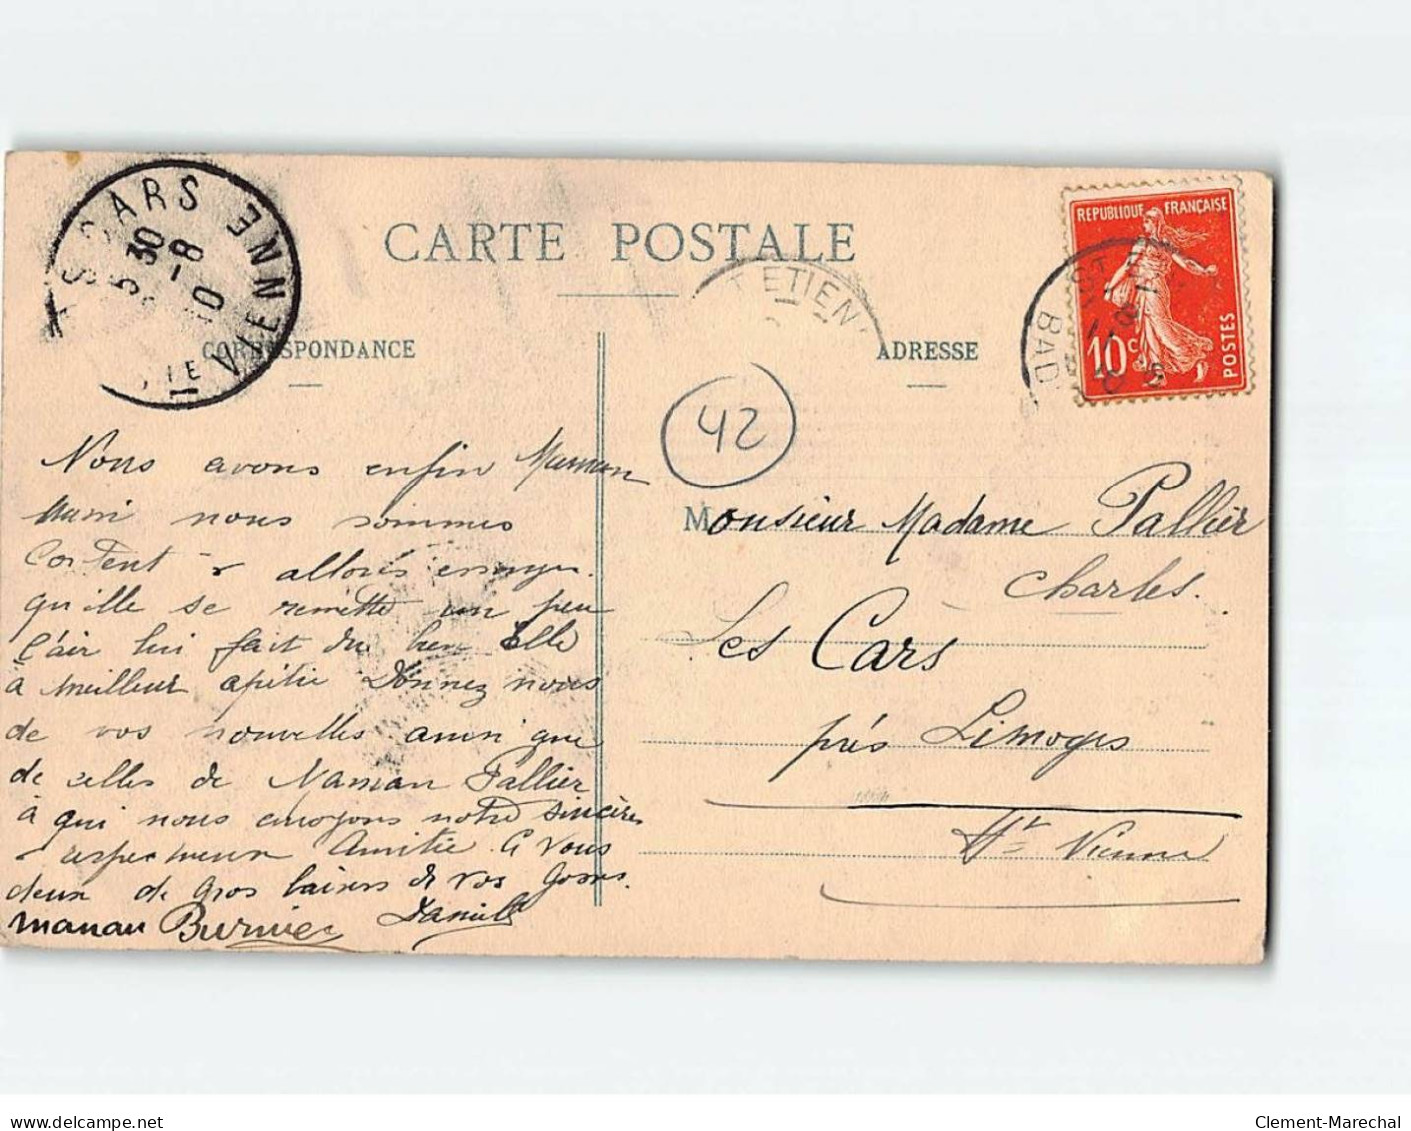 CARTE POSTALE
CORRESPONDANCE
ADRESSE
S CARS
5 30
-8
10
VIENNE
ETIEN
BAD
REPUBLIQUE FRANÇAISE
10c
POSTES
42
Nous avons enfin Maman
aussi nous sommes
Content &
qu'ille se remette un peu
l'air lui fait du bien Elle
a meilleur apétit Donnez nous
de vos nouvelles ainsi que
de celles de Maman Pallier
à qui nous envoyons notre sincère
& respectueux Amitié. A vous
deux de Gros baisers de vos Gosses.
maman Burnier Daniell
Monsieur Madame Pallier
Charles.
Les Cars
près Limoges
Hte Vienne
Clement-Marechal